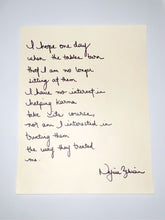 I hope one day
when the tables turn
that I am no longer
sitting at them
I have no interest in
helping karma
take its course,
nor am I interested in
treating them
the way they treated
me.
Najwa Zebian